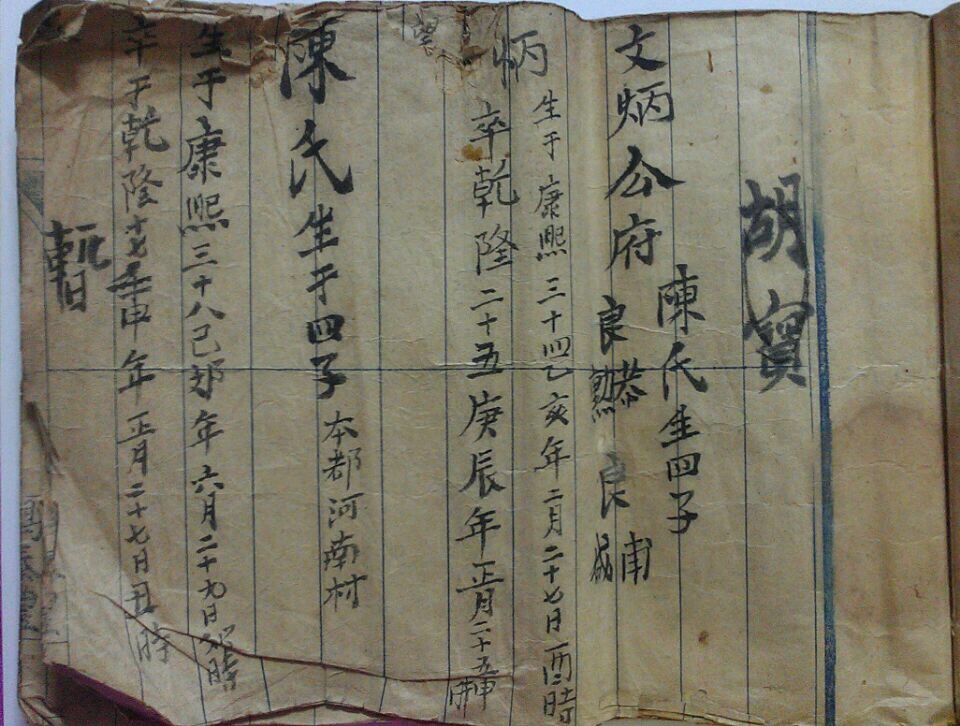 胡寳
陳氏生四子
文炳公府
良恭勲
良甫成
生于康熙三十四乙亥年二月二十七日酉時
炳卒乾隆二十五庚辰年正月二十五申時
陳氏生于四子
本都河南村
生于康熙三十八己夘年六月二十九日夘時
卒于乾隆十七壬申年正月二十七日丑時
暫